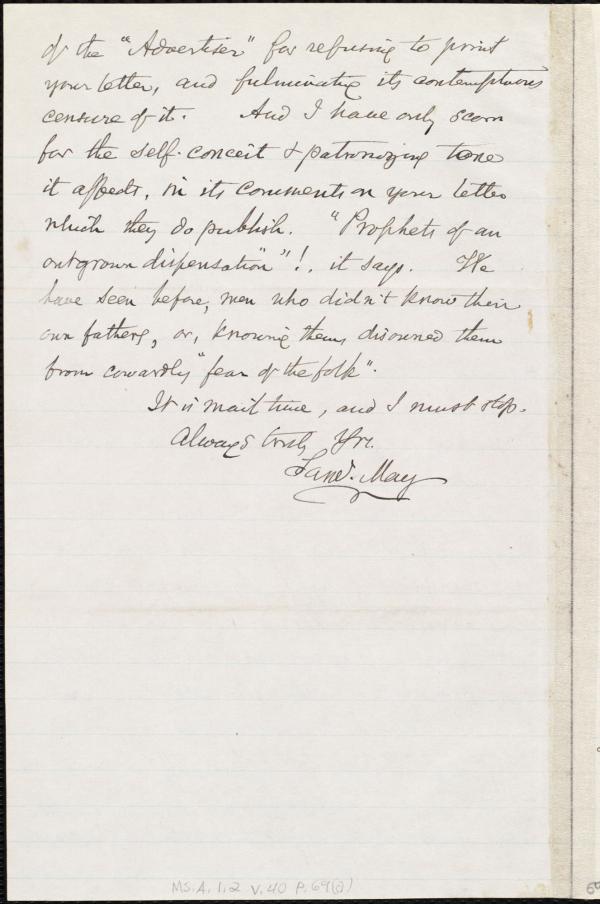 of the "Advertiser" for refusing to print
your letter, and fulminating its contemptuous
censure of it. And I have only scorn
for the self-conceit & patronizing tone
it affects, in its comments on your letter
which they do publish. "Prophets of an
outgrown dispensation"! it says. We
have seen before, men who didn't know their
own fathers, or, knowing them, disowned them
from cowardly "fear of the folk".
It is mail time, and I must stop.
Always truly Yrs.
Saml. May
MS.A.1.2 V.40 P.69(2)